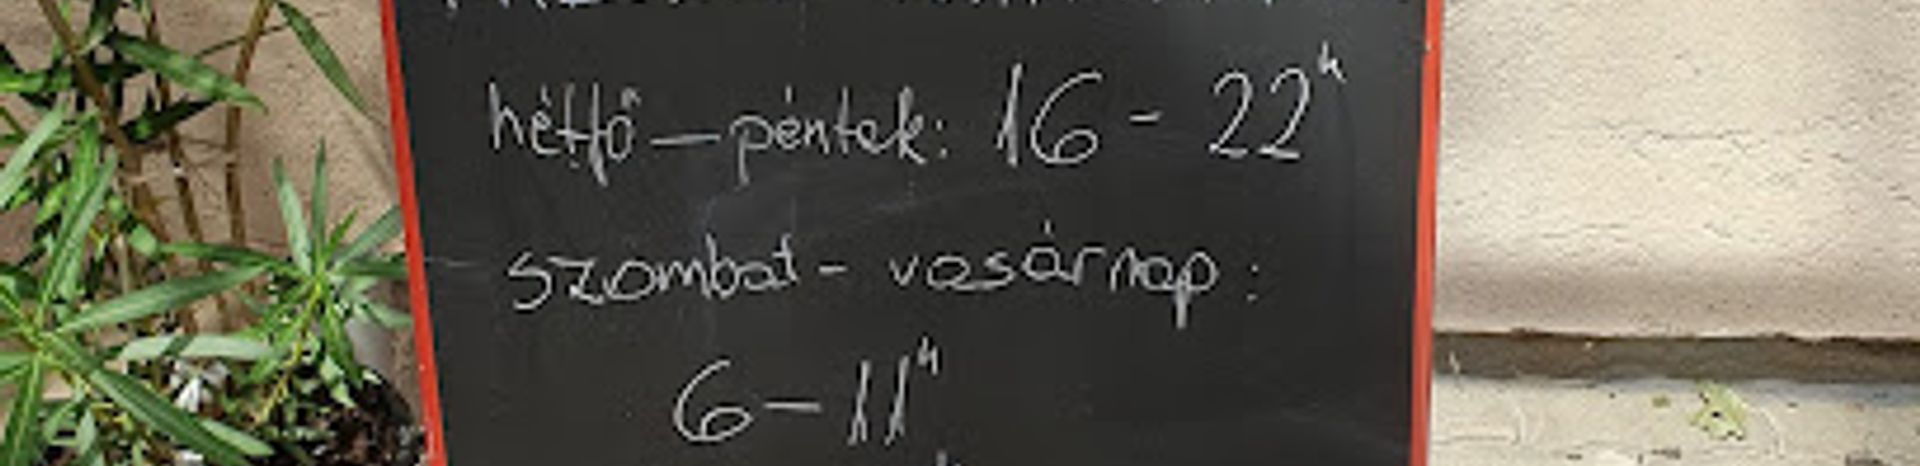 hétfő — péntek: 16 - 22h
szombat - vasárnap:
6 — 11h